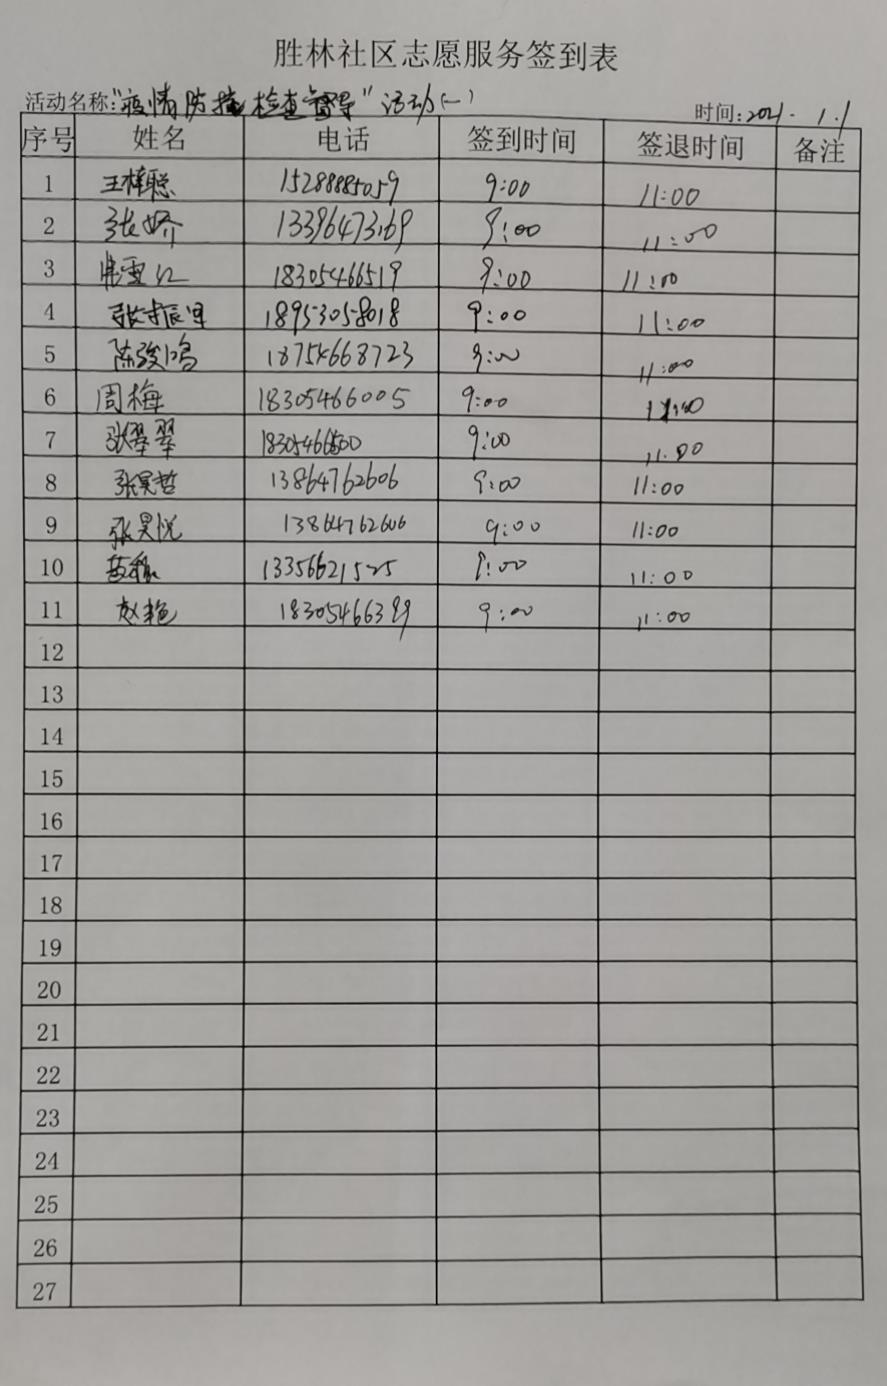 胜林社区志愿服务签到表
活动名称:"疫情防控检查督导"活动(一) 时间:2021.1.1
序号 姓名 电话 签到时间 签退时间 备注
1 王梓聪 15288885059 9:00 11:00
2 张娇 13396473169 9:00 11:00
3 18305466519 9:00 11:00
4 张振 18953058018 9:00 11:00
5 陈骏鸣 18754668723 9:00 11:00
6 周梅 18305466005 9:00 11:00
7 张翠翠 9:00 11:00
8 张昊哲 13864762606 9:00 11:00
9 张昊悦 13864762606 9:00 11:00
10 13356621525 9:00 11:00
11 赵艳 18305466399 9:00 11:00
12
13
14
15
16
17
18
19
20
21
22
23
24
25
26
27